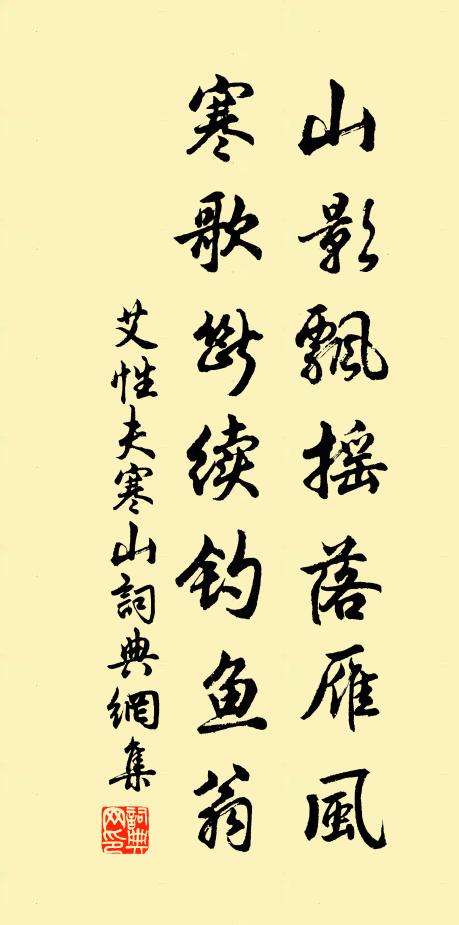 山影飄摇落雁風
寒歌断续钓鱼翁
艾性夫寒山詞典網集
詞典网印